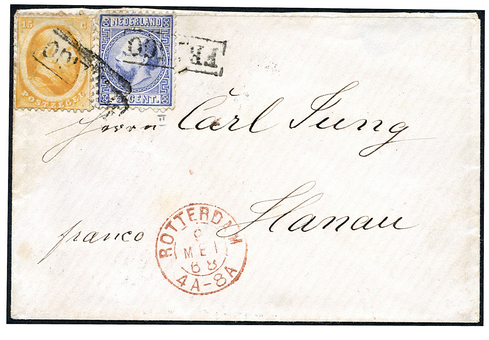 15
POSTZEGEL
NEDERLAND
CENT.
FRANCO
Herrn Carl Jung
Hanau
franco
ROTTERDAM
8
MEI
68
4A-8A
II